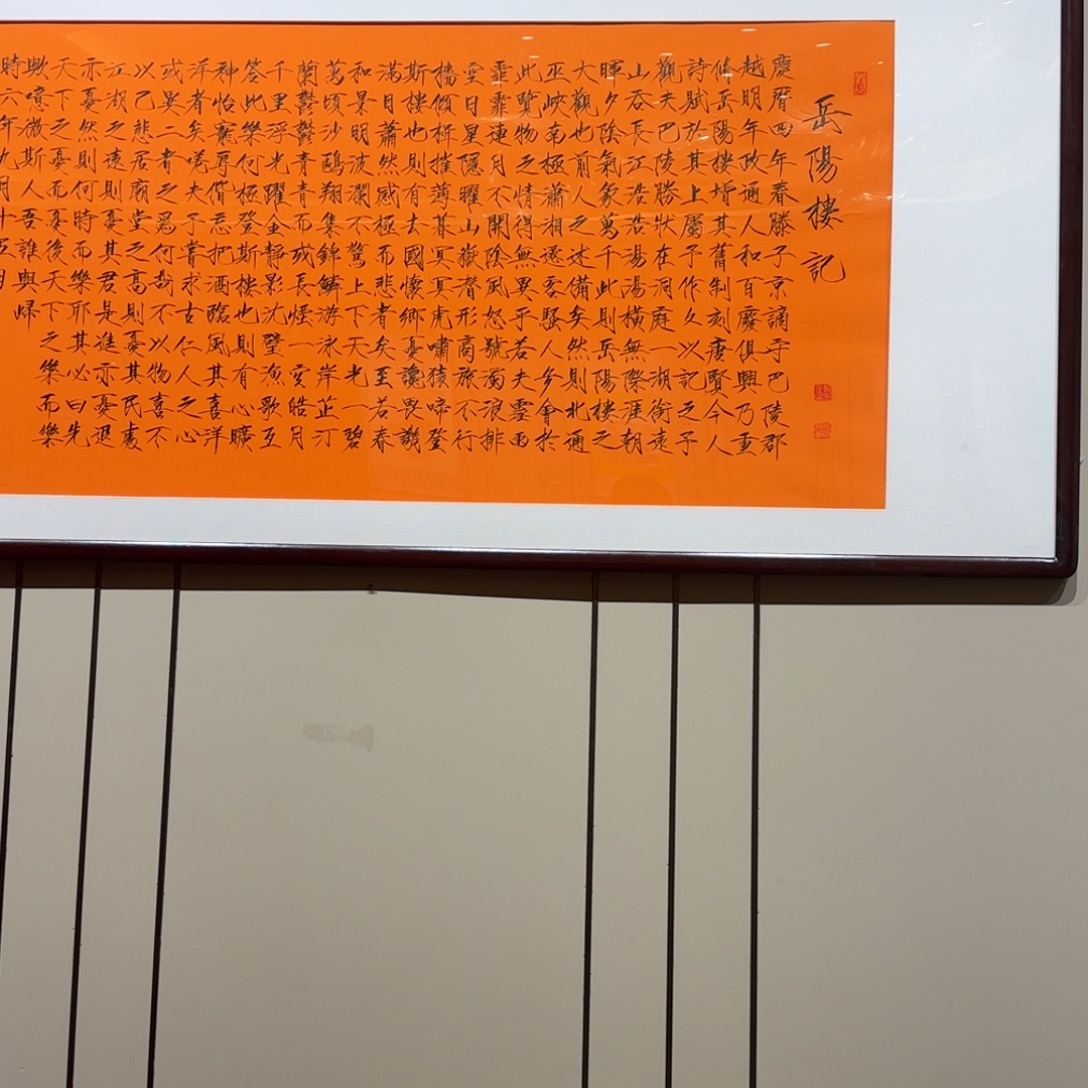 岳陽樓記
慶曆四年春滕子京謫守巴陵郡
越明年政通人和百廢俱興乃重
修岳陽樓增其舊制刻唐賢今人
詩賦於其上屬予作文以記之予
觀夫巴陵勝狀在洞庭一湖銜遠
山吞長江浩浩湯湯橫無際涯朝
暉夕陰氣象萬千此則岳陽樓之
大觀也前人之述備矣然則北通
巫峽南極瀟湘遷客騷人多會於
此覽物之情得無異乎若夫霪雨
霏霏連月不開陰風怒號濁浪排
空日星隱曜山嶽潛形商旅不行
檣傾楫摧薄暮冥冥虎嘯猿啼登
斯樓也則有去國懷鄉憂讒畏譏
滿目蕭然感極而悲者矣至若春
和景明波瀾不驚上下天光一碧
萬頃沙鷗翔集錦鱗游泳岸芷汀
蘭鬱鬱青青而或長煙一空皓月
千里浮光躍金靜影沈璧漁歌互
答此樂何極登斯樓也則有心曠
神怡寵辱偕忘把酒臨風其喜洋
洋者矣嗟夫予嘗求古仁人之心
或異二者之為何哉不以物喜不
以己悲居廟堂之高則憂其民處
江湖之遠則憂其君是進亦憂退
亦憂然則何時而樂耶其必曰先
天下之憂而憂後天下之樂而樂
歟噫微斯人吾誰與歸
時六年九月十五日